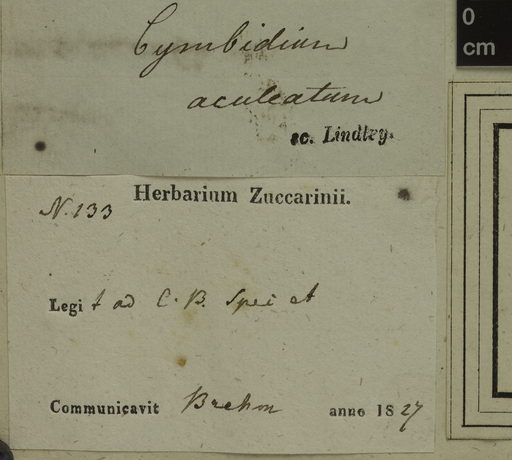 Cymbidium
aculeatum
sc. Lindley.
Herbarium Zuccarinii.
N. 133
Legit ad C. B. Spei et
Communicavit Brehm anno 1827
0
cm